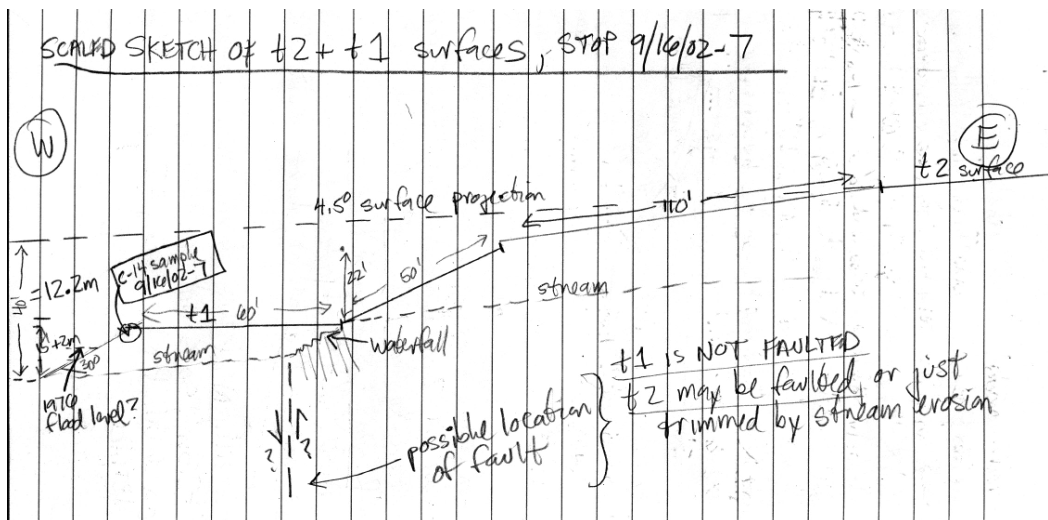 SCALED SKETCH OF t2 + t1 surfaces, STOP 9/16/02-7
W
E
t2 surface
4.5° surface projection
110'
C-14 sample
9/16/02-7
= 12.2m
40'
22'
50'
t1 60'
stream
stream
waterfall
30°
1976
flood level?
? ?
possible location
of fault
t1 IS NOT FAULTED
t2 may be faulted, or just
trimmed by stream erosion